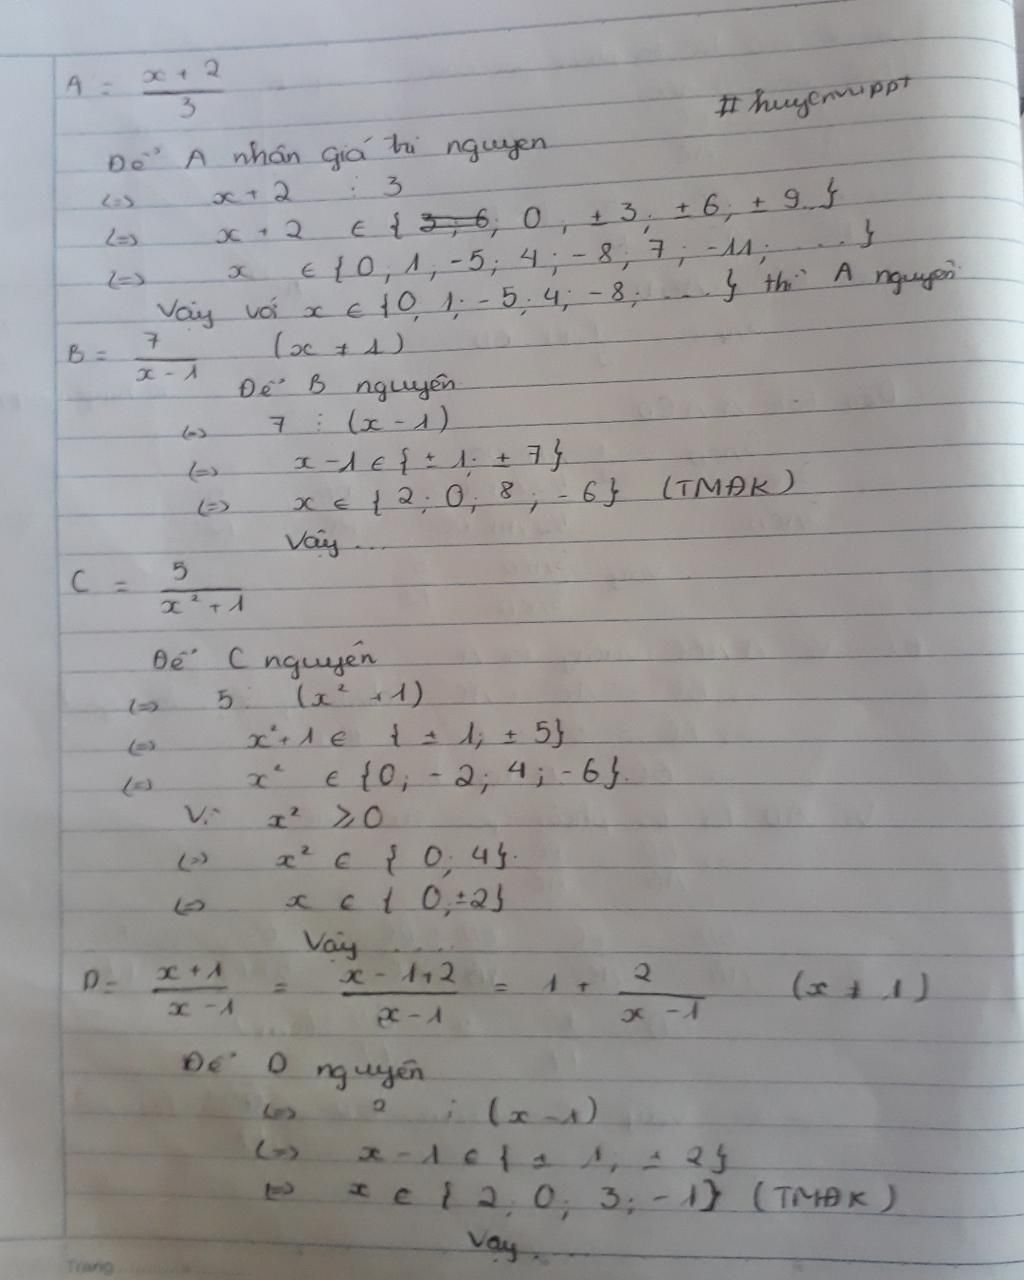 A = x + 2 / 3
#huyenvuppt
Để A nhân giá trị nguyen
<=> x + 2 ⋮ 3
<=> x + 2 ∈ { 3; 6; 0; ±3; ±6; ±9..}
<=> x ∈ {0; 1; -5; 4; -8; 7; -11; .... }
Vậy với x ∈ {0; 1; -5; 4; -8; .... } thì A nguyên
B = 7 / x - 1 (x ≠ 1)
Để B nguyên
<=> 7 ⋮ (x - 1)
<=> x - 1 ∈ { ± 1; ± 7}
<=> x ∈ { 2; 0; 8; -6} (TMĐK)
Vậy ...
C = 5 / x² + 1
Để C nguyên
<=> 5 ⋮ (x² + 1)
<=> x² + 1 ∈ { ± 1; ± 5}
<=> x² ∈ {0; -2; 4; -6}.
Vì x² ⩾ 0
<=> x² ∈ { 0; 4}.
<=> x ∈ { 0; ±2}
Vậy .....
D = x + 1 / x - 1 = x - 1 + 2 / x - 1 = 1 + 2 / x - 1 (x ≠ 1)
Để D nguyên
<=> 2 ⋮ (x - 1)
<=> x - 1 ∈ { ± 1; ± 2}
<=> x ∈ { 2; 0; 3; -1} (TMĐK)
Vậy .......
Trang